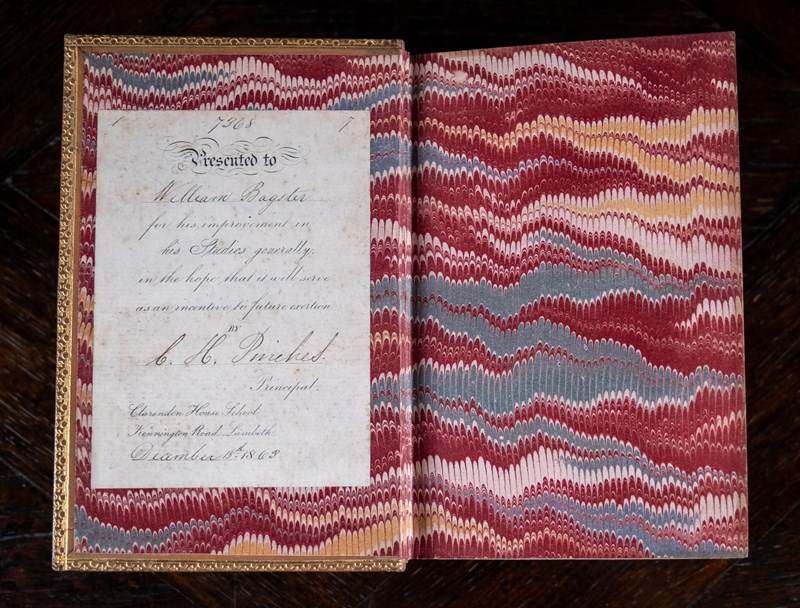 1 7968 7
Presented to
William Bagster
for his improvement in
his Studies generally,
in the hope that it will serve
as an incentive to future exertion
BY
C. H. Pinches.
Principal.
Clarendon House School
Kennington Road Lambeth
December 18th 1863